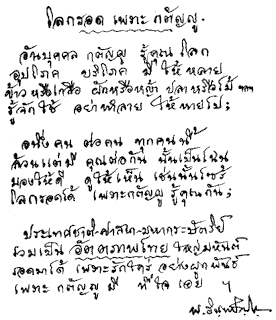 โลกรอด เพราะ กตัญญู.
อันบุคคล กตัญญู รู้คุณ โลก
อุปโภค บริโภค มี ให้ หลาย
ข้าว หรือ เกลือ ผักหรือหญ้า ปลาหรือไม้
รู้จักใช้ อย่าทำลาย ให้หายไป;
อนึ่ง คน ต่อคน ทุกคนนี้
ล้วนแต่มี คุณต่อกัน นั้นเป็นไฉน
มองให้ดี ดูให้เห็น เช่นนั้นไซร้
โลกรอดได้ เพราะกตัญญู รู้คุณกัน;
ประเทศชาติ-ศาสนา-มหากระษัตริย์
รวมเป็น อัตตภาพไทย ใหญ่มหันต์
รอดมาได้ เพราะรักใคร่ อย่างผูกพันธ์
เพราะ กตัญญู มี ที่ใจ เอย ฯ
พ. อินฺทปญฺโญ